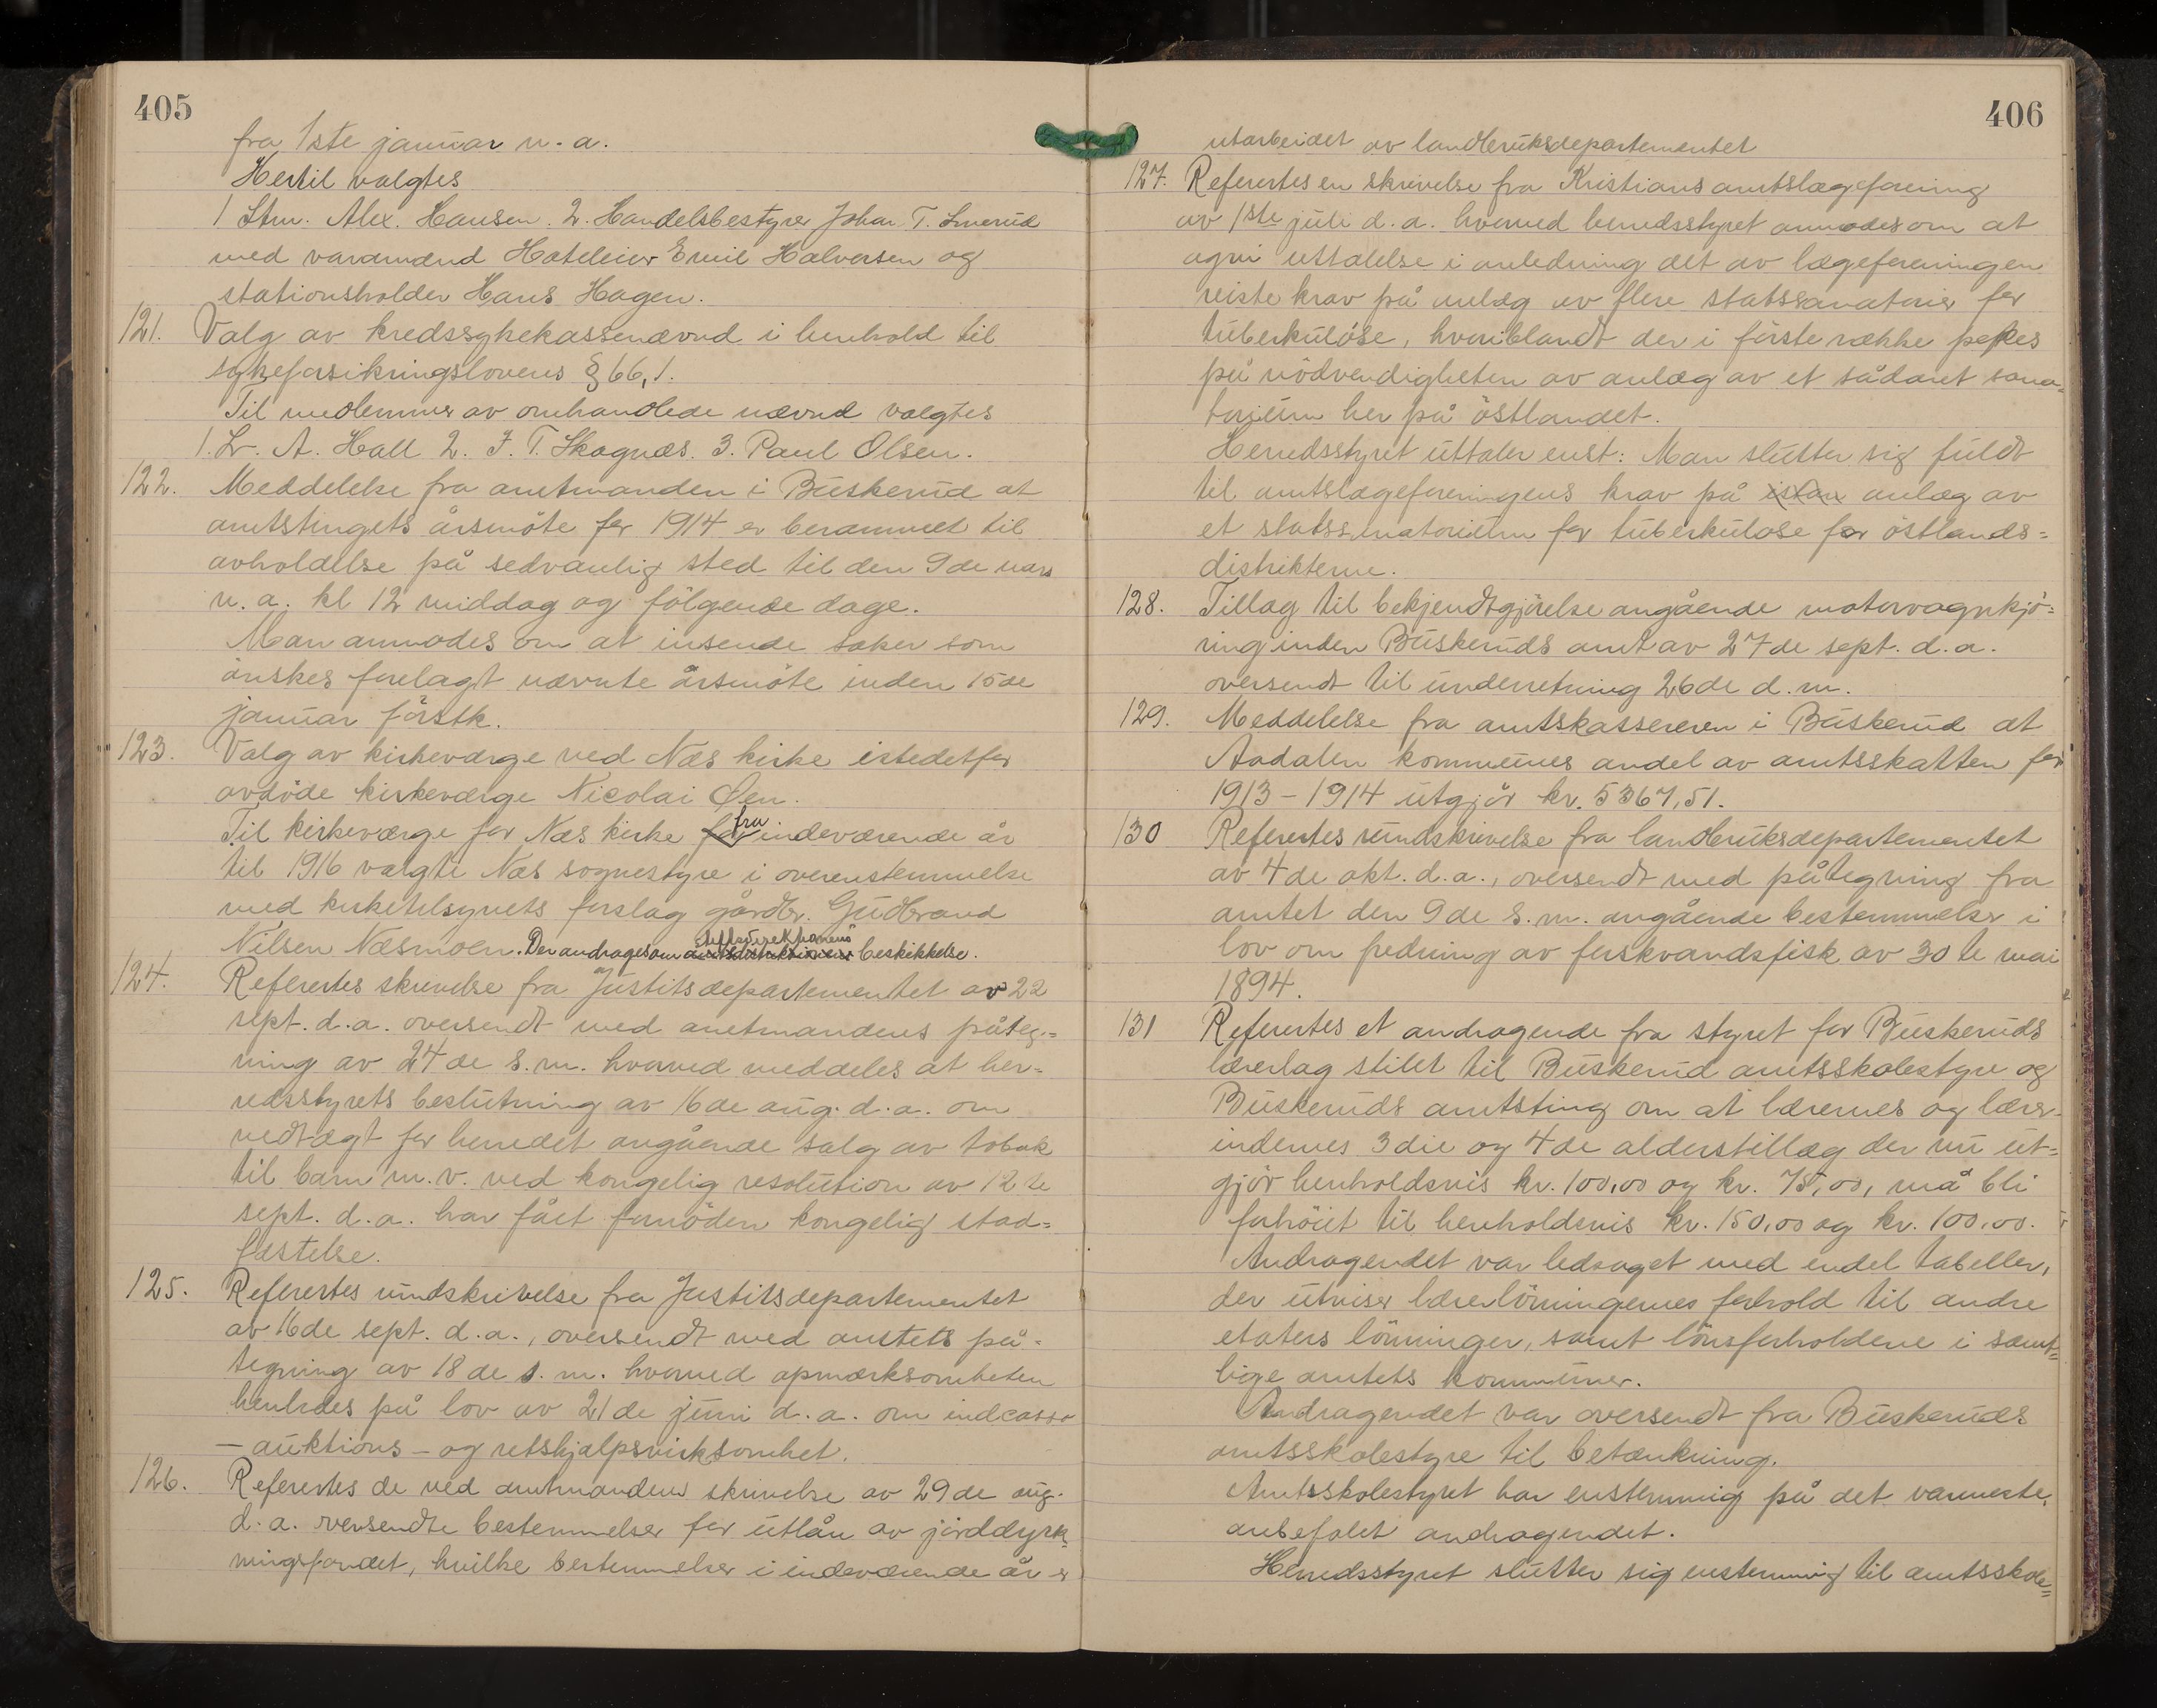 405
fra 1ste januar n. a.
Hertil valgtes
1 Ltm. Alex. Hansen. 2. Handelsbestyrer Johan T. Smerud
med varamænd Hoteleier Emil Halvorsen og
stationsholder Hans Hagen.
121. Valg av kredssykekassenævnd i henhold til
sykeforsikringslovens § 66,1.
Til medlemmer av omhandlede nævnd valgtes
1. Lr. A. Hall 2. J. T. Skagnæs. 3. Paul Olsen.
122. Meddelelse fra amtmanden i Buskerud at
amtstingets årsmöte for 1914 er berammet til
avholdelse på sedvanlig sted til den 9de mars
n. a. kl 12 middag og fölgende dage.
Man anmodes om at insende saker som
önskes forelagt nævnte årsmöte inden 15de
januar förstk.
123. Valg av kirkeværge ved Næs kirke istedetfor
avdöde kirkeværge Nicolai Öen.
Til kirkeværge for Næs kirke for fra indeværende år
til 1916 valgte Næs sognestyre i overenstemmelse
med kirketilsynets forslag gårdbr. Gudbrand
Nilsen Næsmoen. Der andrages om stiftsdirektionens beskikkelse.
124. Referertes skrivelse fra Justitsdepartementet av 22
sept. d.a. oversendt med amtmandens påteg-
ning av 24de s.m. hvorved meddeles at her-
redsstyrets beslutning av 16de aug. d.a. om
vedtægt for herredet angående salg av tobak
til barn m.v. ved kongelig resolution av 12te
sept. d.a. har fået fornöden kongelig stad-
fæstelse.
125. Referertes rundskrivelse fra Justitsdepartementet
av 16de sept. d.a., oversendt med amtets på-
tegning av 18de s.m. hvorved opmærksomheten
henledes på lov av 21de juni d.a. om indcasso
- auktions - og retshjælpsvirksomhet.
126. Referertes de ved amtmandens skrivelse av 29de aug.
d.a. oversendte bestemmelser for utlån av jorddyrk-
ningsfondet, hvilke bestemmelser i indeværende år er
406
utarbeidet av landbruksdepartementet
127. Referertes en skrivelse fra Kristians amtslægeforening
av 1ste juli d.a. hvorved herredsstyret anmodes om at
avgi uttalelse i anledning det av lægeforeningen
reiste krav på anlæg av flere statssanatorier for
tuberkulöse, hvoriblandt der i förste række pekes
på nödvendigheten av anlæg av et sådant sana-
torium her på östlandet.
Herredsstyret uttaler enst: Man slutter sig fuldt
til amtslægeforeningens krav på anlæg av
et statssanatorium for tuberkulose for östlands=
distrikterne.
128. Tillæg til bekjendtgjörelse angående motorvognkjö=
ring inden Buskeruds amt av 27de sept. d.a.
oversendt til underretning 26de d.m.
129. Meddelelse fra amtskassereren i Buskerud at
Aadalen kommunes andel av amtsskatten for
1913 - 1914 utgjör kr. 5367,51.
130 Referertes rundskrivelse fra landbruksdepartementet
av 4de okt. d.a., oversendt med påtegning fra
amtet den 9de s.m. angående bestemmelser i
lov om fredning av ferskvandsfisk av 30te mai
1894.
131 Referertes et andragende fra styret for Buskeruds
lærerlag stilet til Buskerud amtsskolestyre og
Buskeruds amtsting om at lærernes og lærer-
indernes 3die og 4de alderstillæg der nu ut=
gjör henholdsvis kr. 100,00 og kr. 75,00, må bli
forhöiet til henholdsvis kr. 150,00 og kr. 100,00.
Andragendet var ledsaget med endel tabeller,
der utviser lærerlönningernes forhold til andre
etaters lönninger, samt lönsforholdene i samt=
lige amtets kommuner.
Andragendet var oversendt fra Buskeruds
amtsskolestyre til betænkning.
Amtsskolestyret har enstemmig på det varmeste
anbefalet andragendet.
Herredsstyret slutter sig enstemmig til amtsskole=